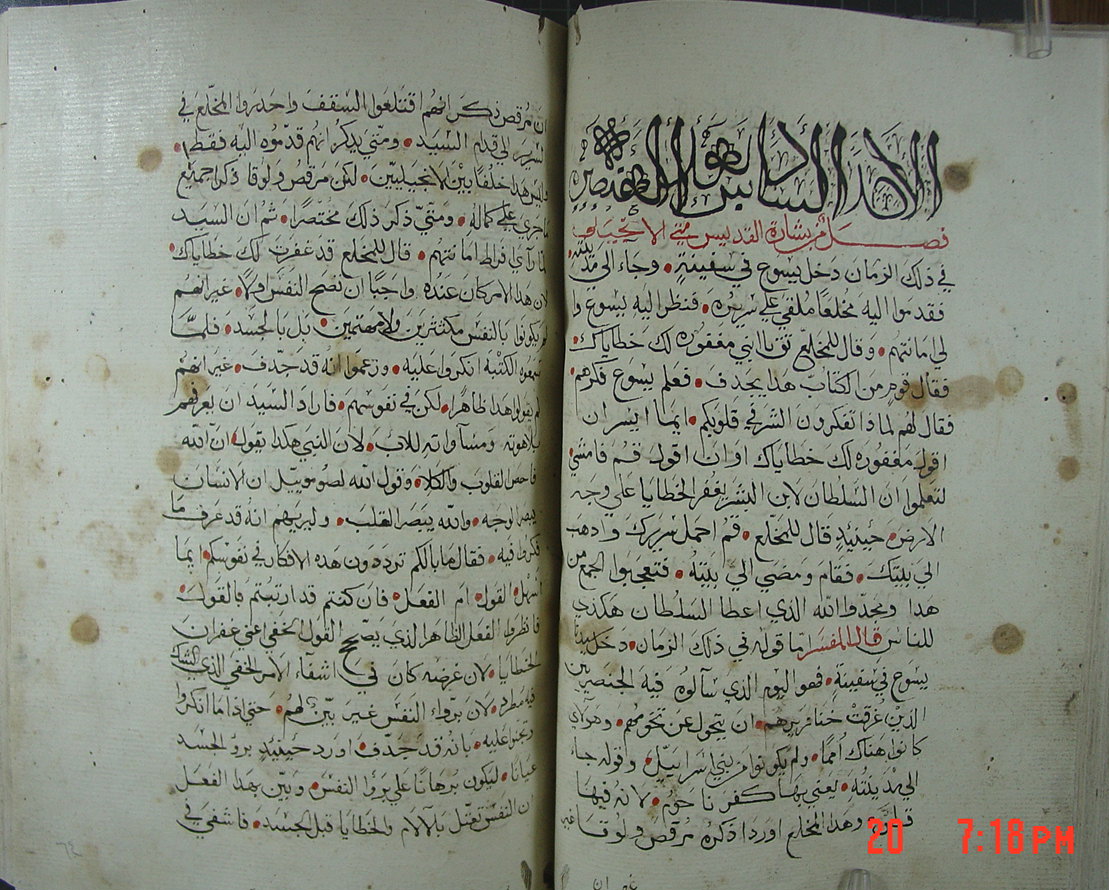 الاحد السادس بعد العنصره
فصل من بشارة القديس متي الانجيلي
في ذلك الزمان دخل يسوع في سفينةٍ وجاء الي مدينته
فقدموا اليه مخلعًا ملقي علي سريره فنظر يسوع
الي امانتهم وقال للمخلع ثق يا ابني مغفوره لك خطاياك
فقال قوم من الكتاب هذا يجدف فعلم يسوع فكرهم
فقال لهم لماذا تفكرون الشر في قلوبكم ايما ايسر ان
اقول مغفوره لك خطاياك او ان اقول قم فامشي
لتعلموا ان السلطان لابن البشر يغفر الخطايا علي وجه
الارض حينيدٍ قال للمخلع قم احمل سريرك وادهب
الي بيتك فقام ومضي الي بيته فتعجبوا الجمع من
هدا ومجدوا الله الذي اعطا السلطان هكدي
للناس قال المفسر اما قوله في ذلك الزمان دخل
يسوع في سفينةٍ فهو اليوم الذي سألوه فيه
الذين غرقت خنازيرهم ان يتحول عن تخومهم وهولاي
كانوا هناك أممًا ولم يكونوا من بني اسراييل وقوله جاء
الي مدينته يعني بها كفرناحوم لانه فيها
وهدا المخلع اوردا ذكره مرقص ولوقا
غير ان
ان مرقص ذكر انهم اقتلعوا السقف واحدروا المخلع في
السرير الي قدام السيد ومتي يدكر انهم قدموه اليه فقط
وليس هدا خلفًا بين الانجيليين لكن مرقص ولوقا ذكرا جميع
ما جري علي كماله ومتي ذكر ذلك مختصرًا ثم ان السيد
لما رأي افراط امانتهم قال للمخلع قد غفرت لك خطاياك
لان هدا الامر كان عنده واجبًا ان تصح النفس اولًا غير انهم
لم يكونوا بالنفس مكترثين ولا مهتمين بل بالجسد فلما
سمعوه الكتبة انكروا عليه وزعموا انه قد جدف غير انهم
لم يقولوا هدا ظاهرًا لكن في نفوسهم فاراد السيد ان يعرفهم
بلاهوته ومساواته للاب لان النبي هكدا يقول ان الله
فاحص القلوب والكلا وقول الله لصموييل ان الانسان
يبصر الوجه والله يبصر القلب وليريهم انه قد عرف ما
فكروا فيه فقال ما بالكم ترددون هده الافكار في نفوسكم ايما
اسهل القول ام الفعل فان كنتم قد ارتبتم بالقول
فانظروا الفعل الظاهر الذي يصحح القول الخفي اعني غفران
الخطايا لان غرضه كان في اشفاء الامر الخفي الذي الشك
فيه لان بروء النفس غير بين لهم حتي اذا ما انكروا
عليه بانه قد جدف اورد حينيدٍ برو الجسد
عيانًا ليكون برهانًا علي برؤ النفس وبين بهدا الفعل
ان النفس تعتل بالآلام والخطايا قبل الجسد فاشفي